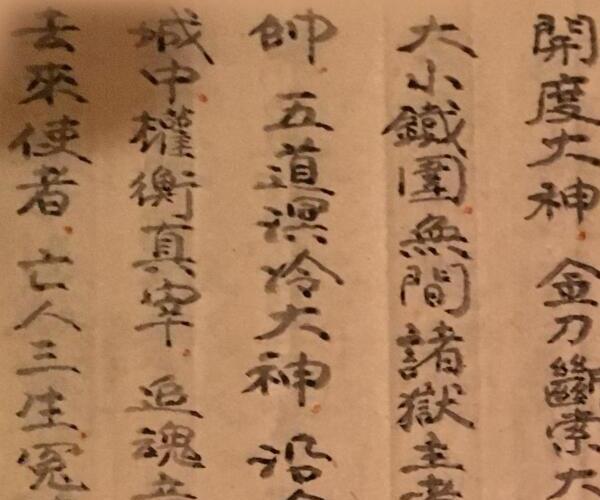 開度大神 金刀斷索大
大小鐵圍無間諸獄主者
帥 五道溟泠大神 沿
城中權衡真宰 追魂
去來使者 亡人三生冤